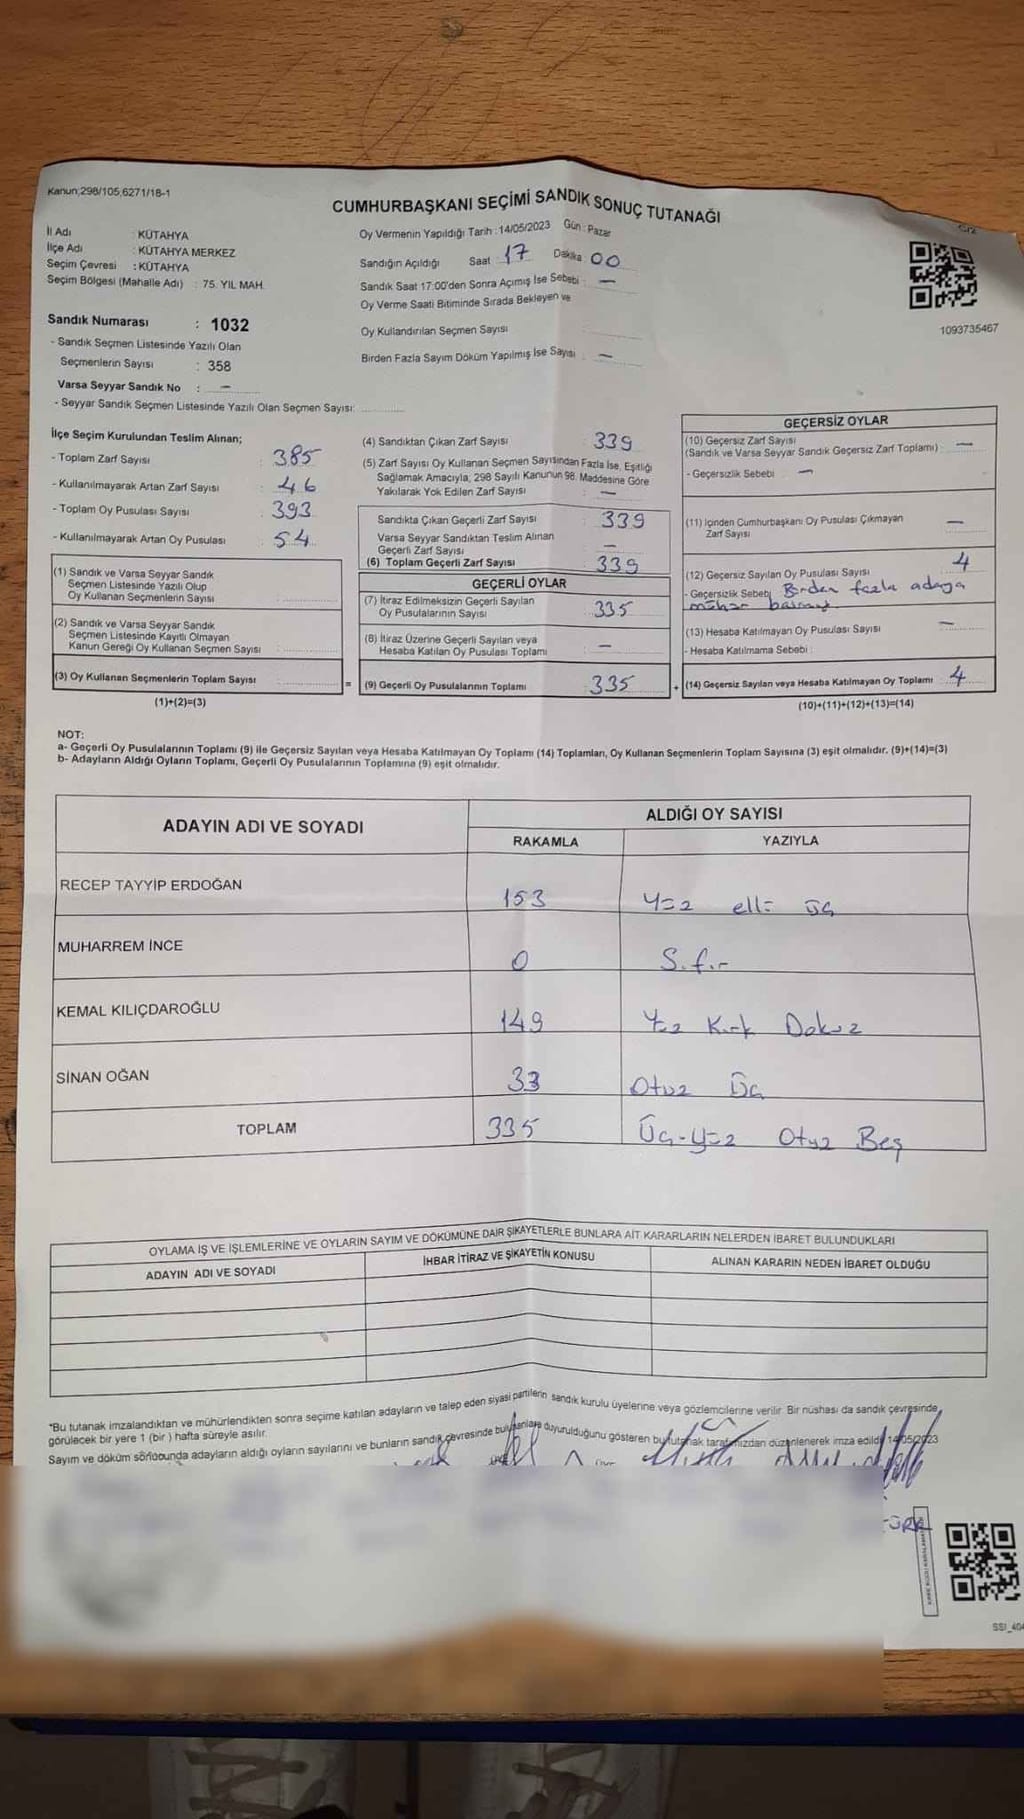 Kanun;298/105,6271/18-1
CUMHURBAŞKANI SEÇİMİ SANDIK SONUÇ TUTANAĞI
C/2
İl Adı : KÜTAHYA
İlçe Adı : KÜTAHYA MERKEZ
Seçim Çevresi : KÜTAHYA
Seçim Bölgesi (Mahalle Adı) : 75. YIL MAH.
Oy Vermenin Yapıldığı Tarih : 14/05/2023 Gün : Pazar
Sandığın Açıldığı Saat 17 Dakika 00
Sandık Saat 17:00'den Sonra Açımış İse Sebebi : —
Oy Verme Saati Bitiminde Sırada Bekleyen ve
Oy Kullandırılan Seçmen Sayısı
Birden Fazla Sayım Döküm Yapılmış İse Sayısı : —
1093735467
Sandık Numarası : 1032
- Sandık Seçmen Listesinde Yazılı Olan
Seçmenlerin Sayısı : 358
Varsa Seyyar Sandık No : —
- Seyyar Sandık Seçmen Listesinde Yazılı Olan Seçmen Sayısı:
İlçe Seçim Kurulundan Teslim Alınan;
- Toplam Zarf Sayısı : 385
- Kullanılmayarak Artan Zarf Sayısı : 46
- Toplam Oy Pusulası Sayısı : 393
- Kullanılmayarak Artan Oy Pusulası : 54
(1) Sandık ve Varsa Seyyar Sandık
Seçmen Listesinde Yazılı Olup
Oy Kullanan Seçmenlerin Sayısı
(2) Sandık ve Varsa Seyyar Sandık
Seçmen Listesinde Kayıtlı Olmayan
Kanun Gereği Oy Kullanan Seçmen Sayısı
(3) Oy Kullanan Seçmenlerin Toplam Sayısı
(1)+(2)=(3)
(4) Sandıktan Çıkan Zarf Sayısı : 339
(5) Zarf Sayısı Oy Kullanan Seçmen Sayısından Fazla İse, Eşitliği
Sağlamak Amacıyla; 298 Sayılı Kanunun 98. Maddesine Göre
Yakılarak Yok Edilen Zarf Sayısı : —
Sandıkta Çıkan Geçerli Zarf Sayısı : 339
Varsa Seyyar Sandıktan Teslim Alınan
Geçerli Zarf Sayısı : —
(6) Toplam Geçerli Zarf Sayısı : 339
GEÇERLİ OYLAR
(7) İtiraz Edilmeksizin Geçerli Sayılan
Oy Pusulalarının Sayısı : 335
(8) İtiraz Üzerine Geçerli Sayılan veya
Hesaba Katılan Oy Pusulası Toplamı : —
= (9) Geçerli Oy Pusulalarının Toplamı 335
GEÇERSİZ OYLAR
(10) Geçersiz Zarf Sayısı
(Sandık ve Varsa Seyyar Sandık Geçersiz Zarf Toplamı) : —
- Geçersizlik Sebebi : —
(11) İçinden Cumhurbaşkanı Oy Pusulası Çıkmayan
Zarf Sayısı —
(12) Geçersiz Sayılan Oy Pusulası Sayısı : 4
- Geçersizlik Sebebi Birden fazla adaya
mühür basımış
(13) Hesaba Katılmayan Oy Pusulası Sayısı : —
- Hesaba Katılmama Sebebi :
+ (14) Geçersiz Sayılan veya Hesaba Katılmayan Oy Toplamı : 4
(10)+(11)+(12)+(13)=(14)
NOT:
a- Geçerli Oy Pusulalarının Toplamı (9) ile Geçersiz Sayılan veya Hesaba Katılmayan Oy Toplamı (14) Toplamları, Oy Kullanan Seçmenlerin Toplam Sayısına (3) eşit olmalıdır. (9)+(14)=(3)
b- Adayların Aldığı Oyların Toplamı, Geçerli Oy Pusulalarının Toplamına (9) eşit olmalıdır.
ADAYIN ADI VE SOYADI ALDIĞI OY SAYISI
RAKAMLA YAZIYLA
RECEP TAYYİP ERDOĞAN 153 Yüz elli üç
MUHARREM İNCE 0 Sıfır
KEMAL KILIÇDAROĞLU 149 Yüz Kırk Dokuz
SİNAN OĞAN 33 Otuz Üç
TOPLAM 335 Üç-yüz Otuz Beş
OYLAMA İŞ VE İŞLEMLERİNE VE OYLARIN SAYIM VE DÖKÜMÜNE DAİR ŞİKAYETLERLE BUNLARA AİT KARARLARIN NELERDEN İBARET BULUNDUKLARI
ADAYIN ADI VE SOYADI İHBAR İTİRAZ VE ŞİKAYETİN KONUSU ALINAN KARARIN NEDEN İBARET OLDUĞU
*Bu tutanak imzalandıktan ve mühürlendikten sonra seçime katılan adayların ve talep eden siyasi partilerin sandık kurulu üyelerine veya gözlemcilerine verilir. Bir nüshası da sandık çevresinde
görülecek bir yere 1 (bir) hafta süreyle asılır.
Sayım ve döküm sonucunda adayların aldığı oyların sayılarını ve bunların sandık çevresinde bulunanlara duyurulduğunu gösteren bu tutanak tarafımızdan düzenlenerek imza edildi. 14/05/2023
SSI_404